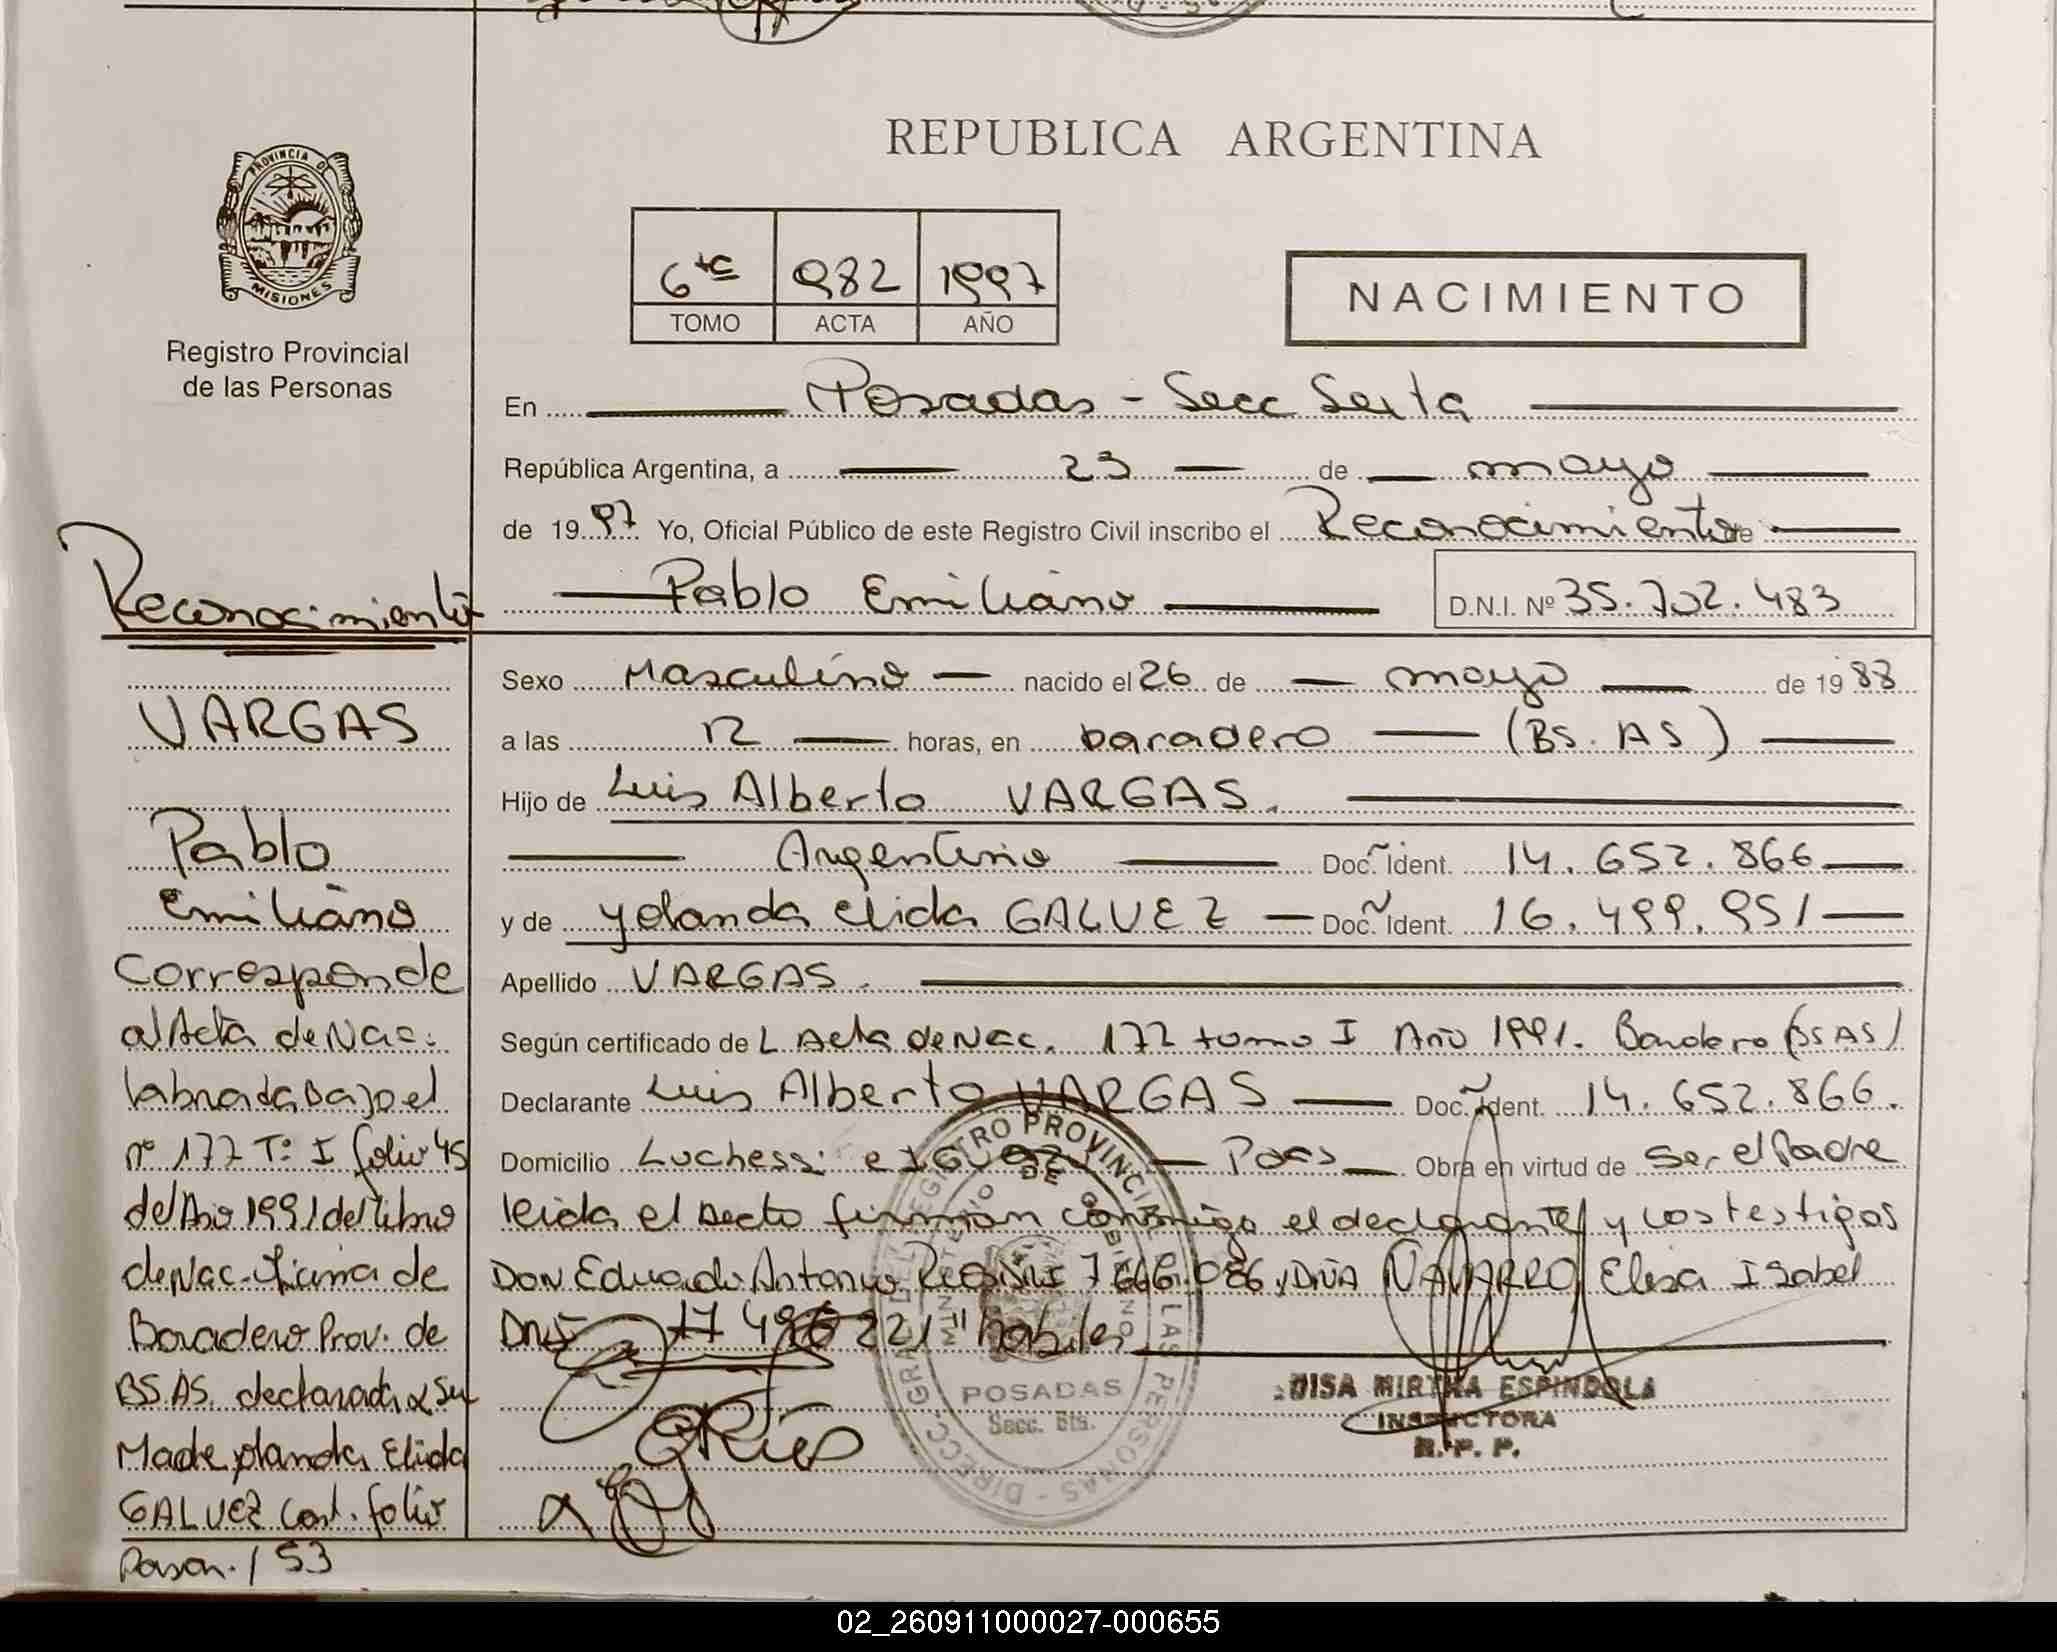 REPUBLICA ARGENTINA
PROVINCIA DE
MISIONES
Registro Provincial
de las Personas
6ta 982 1997
TOMO ACTA AÑO
NACIMIENTO
En Posadas - Secc Sexta
República Argentina, a 23 de mayo
de 1997 Yo, Oficial Público de este Registro Civil inscribo el Reconocimiento de
Pablo Emiliano D.N.I. Nº 35.702.483
Sexo Masculino nacido el 26 de mayo de 1988
a las 12 horas, en baradero (BS. AS)
Hijo de Luis Alberto VARGAS.
Argentino Doc. Ident. 14.652.866
y de yolanda elida GALVEZ Doc. Ident. 16.499.951
Apellido VARGAS.
Según certificado de L Acta de Nac. 177 tomo I Año 1991. Baradero (BS AS)
Declarante Luis Alberto VARGAS Doc. Ident. 14.652.866.
Domicilio Luchessi e Pdas Obra en virtud de ser el Padre
leida el acta firman conmigo el declarante y los testigos
Don Eduardo Antonio Rios DNI 7.666.086 y Dña NAVARRO Elisa Isabel
DNI 17 496 221 "habiles
Reconocimiento
VARGAS
Pablo
Emiliano
Corresponde
al Acta de Nac.
labrada bajo el
nº 177 Tº I folio 45
del Año 1991 del Libro
de Nac. Oficina de
Baradero Prov. de
BS.AS. declarada x su
Madre yolanda Elida
GALVEZ Cont. folio
Pasan. / 53
REGISTRO PROVINCIAL DE LAS PERSONAS - DIRECC. GRAL. DEL
MINISTERIO DE GOBIERNO
POSADAS
Secc. 6ta.
MIRTHA ESPINDOLA
INSPECTORA
R. P. P.
ERios
02_260911000027-000655